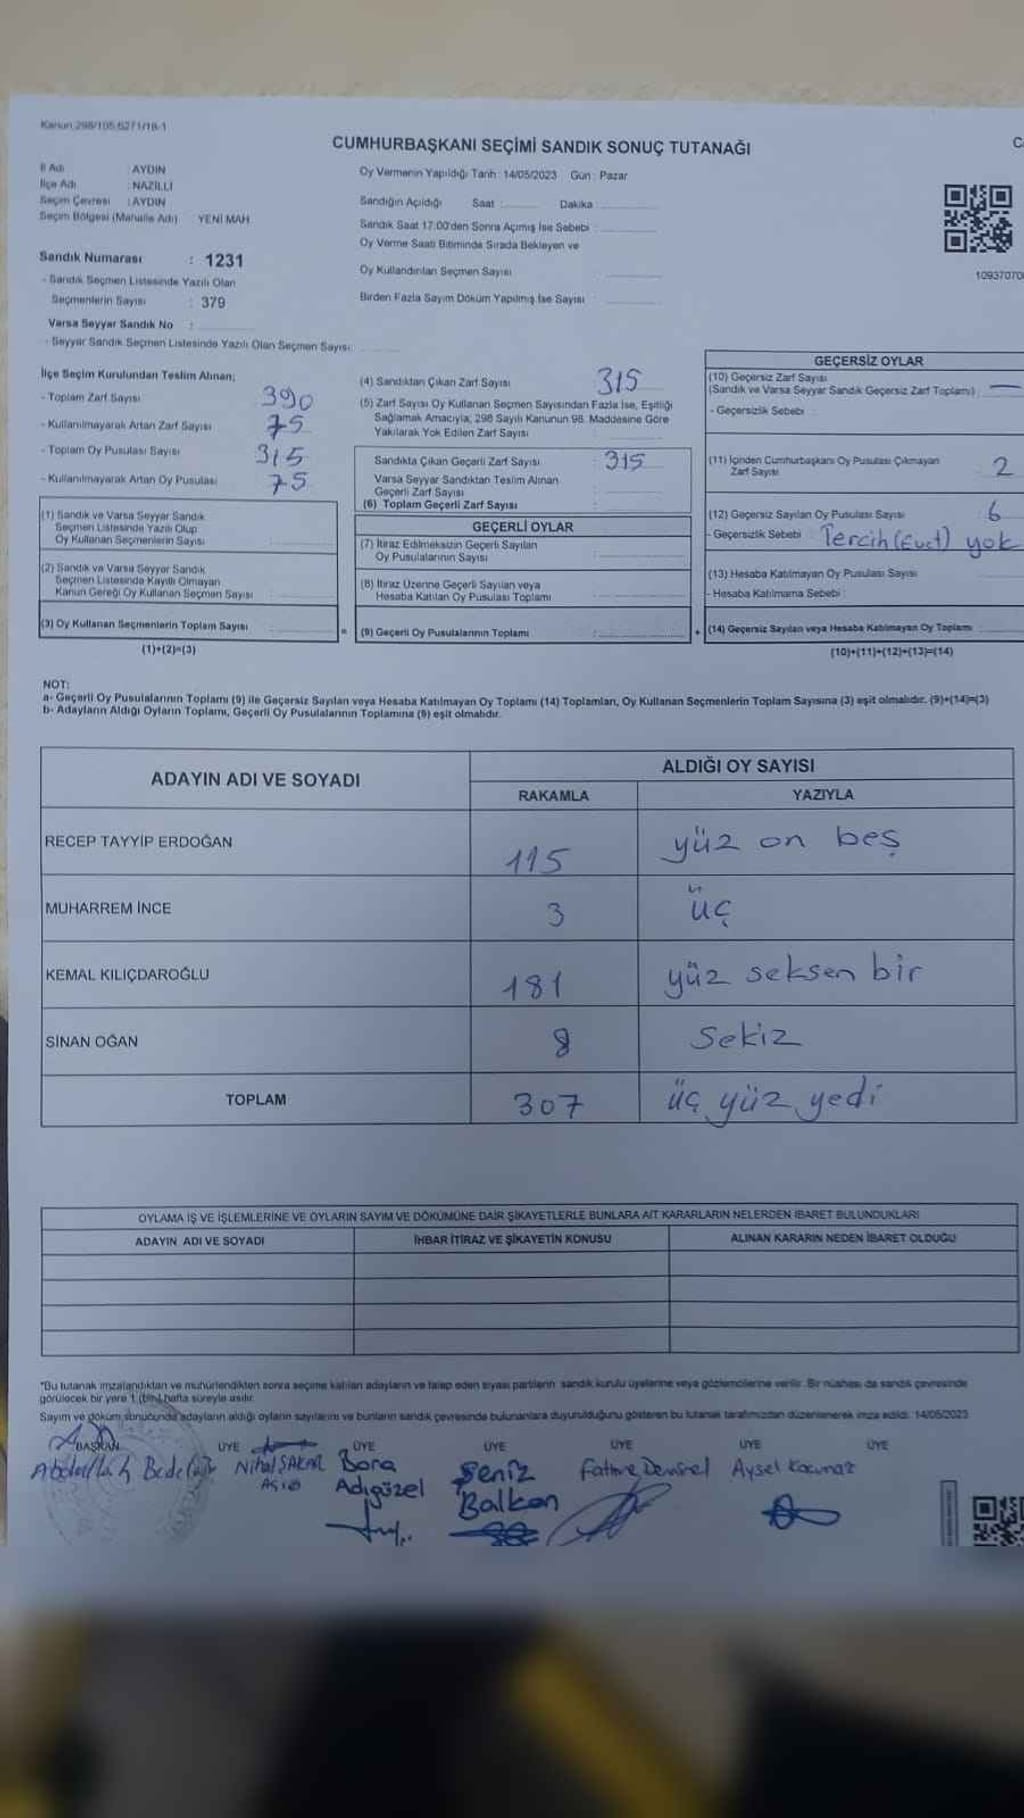 Kanun 298/105,6271/18-1
CUMHURBAŞKANI SEÇİMİ SANDIK SONUÇ TUTANAĞI
İl Adı : AYDIN
İlçe Adı : NAZİLLİ
Seçim Çevresi : AYDIN
Seçim Bölgesi (Mahalle Adı) YENİ MAH
Oy Vermenin Yapıldığı Tarih : 14/05/2023 Gün : Pazar
Sandığın Açıldığı Saat : Dakika :
Sandık Saat 17:00'den Sonra Açılmış İse Sebebi :
Oy Verme Saati Bitiminde Sırada Bekleyen ve
Oy Kullandırılan Seçmen Sayısı
Birden Fazla Sayım Döküm Yapılmış İse Sayısı :
Sandık Numarası : 1231
- Sandık Seçmen Listesinde Yazılı Olan
Seçmenlerin Sayısı : 379
Varsa Seyyar Sandık No :
- Seyyar Sandık Seçmen Listesinde Yazılı Olan Seçmen Sayısı:
10937070
İlçe Seçim Kurulundan Teslim Alınan;
- Toplam Zarf Sayısı 390
- Kullanılmayarak Artan Zarf Sayısı 75
- Toplam Oy Pusulası Sayısı 315
- Kullanılmayarak Artan Oy Pusulası 75
(1) Sandık ve Varsa Seyyar Sandık
Seçmen Listesinde Yazılı Olup
Oy Kullanan Seçmenlerin Sayısı :
(2) Sandık ve Varsa Seyyar Sandık
Seçmen Listesinde Kayıtlı Olmayan
Kanun Gereği Oy Kullanan Seçmen Sayısı :
(3) Oy Kullanan Seçmenlerin Toplam Sayısı :
(1)+(2)=(3)
=
(4) Sandıktan Çıkan Zarf Sayısı 315
(5) Zarf Sayısı Oy Kullanan Seçmen Sayısından Fazla İse, Eşitliği
Sağlamak Amacıyla, 298 Sayılı Kanunun 98. Maddesine Göre
Yakılarak Yok Edilen Zarf Sayısı :
Sandıkta Çıkan Geçerli Zarf Sayısı : 315
Varsa Seyyar Sandıktan Teslim Alınan
Geçerli Zarf Sayısı :
(6) Toplam Geçerli Zarf Sayısı :
GEÇERLİ OYLAR
(7) İtiraz Edilmeksizin Geçerli Sayılan
Oy Pusulalarının Sayısı :
(8) İtiraz Üzerine Geçerli Sayılan veya
Hesaba Katılan Oy Pusulası Toplamı :
(9) Geçerli Oy Pusulalarının Toplamı :
+
GEÇERSİZ OYLAR
(10) Geçersiz Zarf Sayısı
(Sandık ve Varsa Seyyar Sandık Geçersiz Zarf Toplamı) : —
- Geçersizlik Sebebi :
(11) İçinden Cumhurbaşkanı Oy Pusulası Çıkmayan
Zarf Sayısı 2
(12) Geçersiz Sayılan Oy Pusulası Sayısı 6
- Geçersizlik Sebebi : Tercih (Evet) yok
(13) Hesaba Katılmayan Oy Pusulası Sayısı
- Hesaba Katılmama Sebebi :
(14) Geçersiz Sayılan veya Hesaba Katılmayan Oy Toplamı
(10)+(11)+(12)+(13)=(14)
NOT:
a- Geçerli Oy Pusulalarının Toplamı (9) ile Geçersiz Sayılan veya Hesaba Katılmayan Oy Toplamı (14) Toplamları, Oy Kullanan Seçmenlerin Toplam Sayısına (3) eşit olmalıdır. (9)+(14)=(3)
b- Adayların Aldığı Oyların Toplamı, Geçerli Oy Pusulalarının Toplamına (9) eşit olmalıdır.
ADAYIN ADI VE SOYADI ALDIĞI OY SAYISI
RAKAMLA YAZIYLA
RECEP TAYYİP ERDOĞAN 115 yüz on beş
MUHARREM İNCE 3 üç
KEMAL KILIÇDAROĞLU 181 yüz seksen bir
SİNAN OĞAN 8 Sekiz
TOPLAM 307 üç yüz yedi
OYLAMA İŞ VE İŞLEMLERİNE VE OYLARIN SAYIM VE DÖKÜMÜNE DAİR ŞİKAYETLERLE BUNLARA AİT KARARLARIN NELERDEN İBARET BULUNDUKLARI
ADAYIN ADI VE SOYADI İHBAR İTİRAZ VE ŞİKAYETİN KONUSU ALINAN KARARIN NEDEN İBARET OLDUĞU
*Bu tutanak imzalandıktan ve mühürlendikten sonra seçime katılan adayların ve talep eden siyasi partilerin sandık kurulu üyelerine veya gözlemcilerine verilir. Bir nüshası da sandık çevresinde
görülecek bir yere 1 (bir) hafta süreyle asılır.
Sayım ve döküm sonucunda adayların aldığı oyların sayılarını ve bunların sandık çevresinde bulunanlara duyurulduğunu gösteren bu tutanak tarafımızdan düzenlenerek imza edildi. 14/05/2023
BAŞKAN ÜYE ÜYE ÜYE ÜYE ÜYE ÜYE
Nihal Bora Şeniz Fatme Demirel Aysel
Adıgüzel Balkan